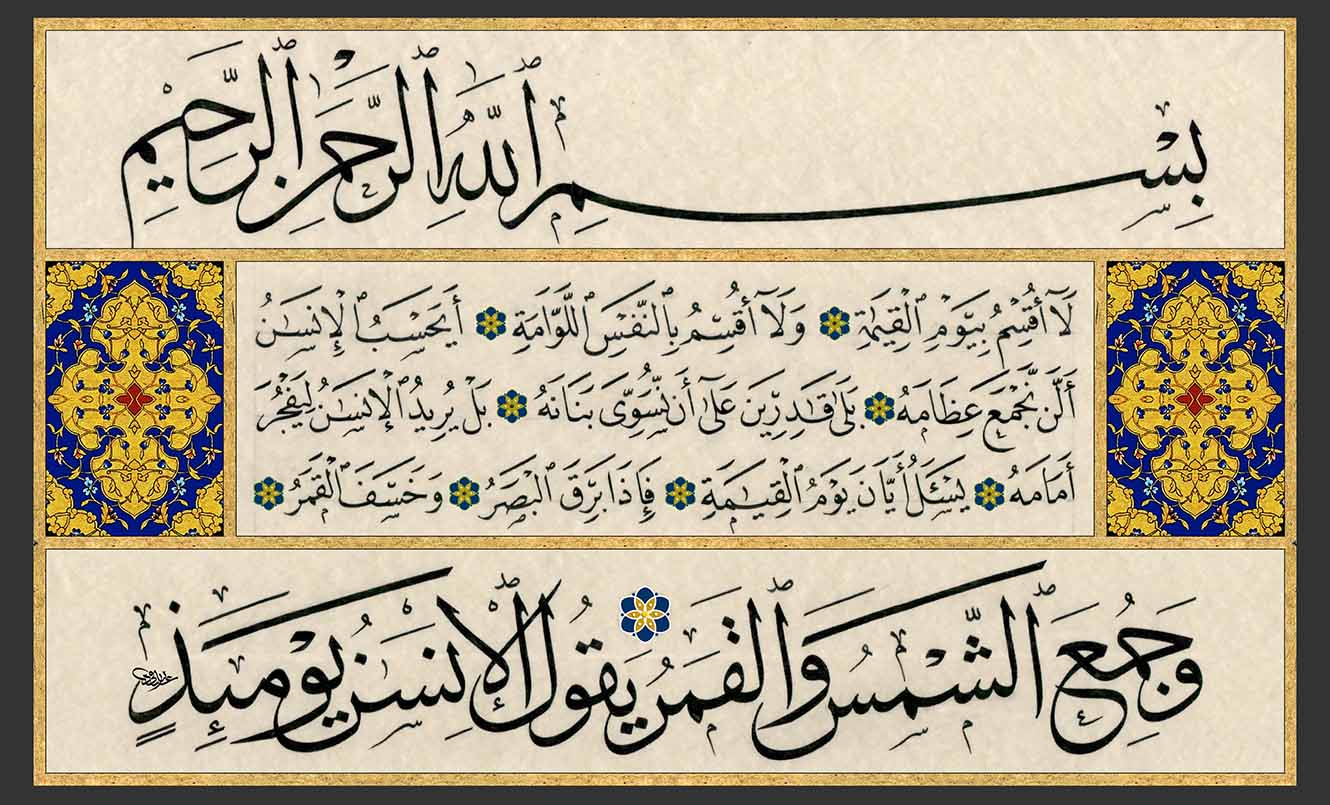 بِسْمِ ٱللَّهِ ٱلرَّحْمَٰنِ ٱلرَّحِيمِ
لَآ أُقْسِمُ بِيَوْمِ ٱلْقِيَٰمَةِ وَلَآ أُقْسِمُ بِٱلنَّفْسِ ٱللَّوَّامَةِ أَيَحْسَبُ ٱلْإِنسَٰنُ
أَلَّن نَّجْمَعَ عِظَامَهُ بَلَىٰ قَٰدِرِينَ عَلَىٰٓ أَن نُّسَوِّىَ بَنَانَهُ بَلْ يُرِيدُ ٱلْإِنسَٰنُ لِيَفْجُرَ
أَمَامَهُ يَسْـَٔلُ أَيَّانَ يَوْمُ ٱلْقِيَٰمَةِ فَإِذَا بَرِقَ ٱلْبَصَرُ وَخَسَفَ ٱلْقَمَرُ
وَجُمِعَ ٱلشَّمْسُ وَٱلْقَمَرُ يَقُولُ ٱلْإِنسَٰنُ يَوْمَئِذٍ